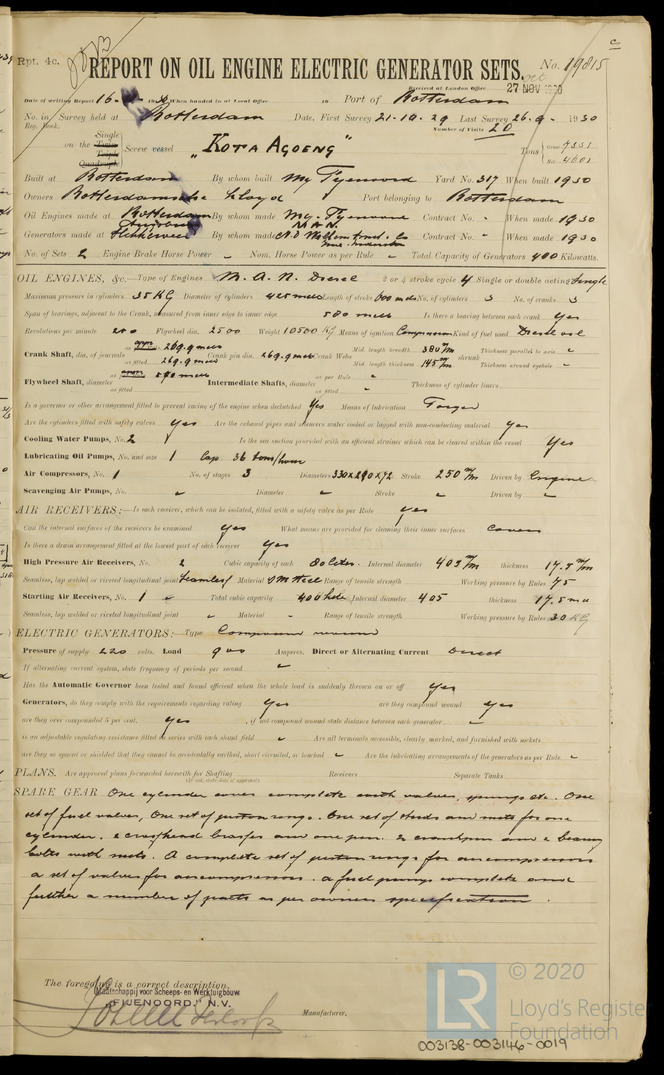 C
Rpt. 4c.
REPORT ON OIL ENGINE ELECTRIC GENERATOR SETS.
No. 19815
Received at London Office 27 NOV 1930
Date of writing Report 16- When handed in at Local Office in Port of Rotterdam
No. in Survey held at Rotterdam Date, First Survey 21-10-29 Last Survey 26-9- 1930
Reg. Book. Number of Visits 20
on the Single Twin Triple Quadruple Screw vessel "KOTA AGOENG" Tons Gross 7331 Net 4601
Built at Rotterdam By whom built Mij Fyenoord Yard No. 317 When built 1930
Owners Rotterdamsche Lloyd Port belonging to Rotterdam
Oil Engines made at Rotterdam By whom made Mij. Fyenoord Contract No. - When made 1930
M.A.N.
Generators made at Slikkerveer By whom made Contract No. - When made 1930
No. of Sets 2 Engine Brake Horse Power - Nom. Horse Power as per Rule - Total Capacity of Generators 400 Kilowatts.
OIL ENGINES, &c.—Type of Engines M.A.N. Diesel 2 or 4 stroke cycle 4 Single or double acting Single
Maximum pressure in cylinders 35 KG Diameter of cylinders 425 mm Length of stroke 600 mm No. of cylinders 3 No. of cranks 3
Span of bearings, adjacent to the Crank, measured from inner edge to inner edge 580 mm Is there a bearing between each crank Yes
Revolutions per minute 200 Flywheel dia. 2500 Weight 10500 KG Means of ignition Compression Kind of fuel used Diesel oil
Crank Shaft, dia. of journals as per Rule 269.9 as fitted 269.9 Crank pin dia. 269.9 Crank Webs Mid. length breadth 380 m/m Mid. length thickness 145 m/m shrunk Thickness parallel to axis - Thickness around eyehole -
Flywheel Shaft, diameter as per Rule as fitted Intermediate Shafts, diameter as per Rule - as fitted - Thickness of cylinder liners
Is a governor or other arrangement fitted to prevent racing of the engine when declutched Yes Means of lubrication Forced
Are the cylinders fitted with safety valves Yes Are the exhaust pipes and silencers water cooled or lagged with non-conducting material Yes
Cooling Water Pumps, No. 2 Is the sea suction provided with an efficient strainer which can be cleared within the vessel Yes
Lubricating Oil Pumps, No. and size 1 Cap 36 tons/hour
Air Compressors, No. 1 No. of stages 3 Diameters 330x290x72 Stroke 250 m/m Driven by Engine
Scavenging Air Pumps, No. - Diameter - Stroke - Driven by -
AIR RECEIVERS:—Is each receiver, which can be isolated, fitted with a safety valve as per Rule yes
Can the internal surfaces of the receivers be examined yes What means are provided for cleaning their inner surfaces Covers
Is there a drain arrangement fitted at the lowest part of each receiver yes
High Pressure Air Receivers, No. 2 Cubic capacity of each 80 liters. Internal diameter 405 m/m thickness 17.5 m/m
Seamless, lap welded or riveted longitudinal joint Seamless Material SM Steel Range of tensile strength Working pressure by Rules 75
Starting Air Receivers, No. 1 Total cubic capacity 400 Internal diameter 405 thickness 17.5 mm
Seamless, lap welded or riveted longitudinal joint - Material - Range of tensile strength Working pressure by Rules 30 KG
ELECTRIC GENERATORS:—Type Compound wound
Pressure of supply 220 volts. Load 900 Amperes. Direct or Alternating Current Direct
If alternating current system, state frequency of periods per second -
Has the Automatic Governor been tested and found efficient when the whole load is suddenly thrown on or off Yes
Generators, do they comply with the requirements regarding rating Yes are they compound wound yes
are they over compounded 5 per cent. yes , if not compound wound state distance between each generator -
is an adjustable regulating resistance fitted in series with each shunt field - Are all terminals accessible, clearly marked, and furnished with sockets
are they so spaced or shielded that they cannot be accidentally earthed, short circuited, or touched - Are the lubricating arrangements of the generators as per Rule -
PLANS. Are approved plans forwarded herewith for Shafting Receivers Separate Tanks
(If not, state date of approval)
SPARE GEAR One cylinder cover complete with valves, springs etc. One
set of fuel valves, One set of piston rings. One set of studs and nuts for one
cylinder. 2 crosshead brasses and one pin. 2 crankpin and 2 bearing
bolts with nuts. A complete set of piston rings for aircompressors
a set of valves for aircompressors. a fuel pump complete and
further a number of parts as per owners specification.
The foregoing is a correct description,
Maatschappij voor Scheeps- en Werktuigbouw
"FIJENOORD" N.V.
Manufacturer.
LR
© 2020
Lloyd's Register
Foundation
003138-003146-0019